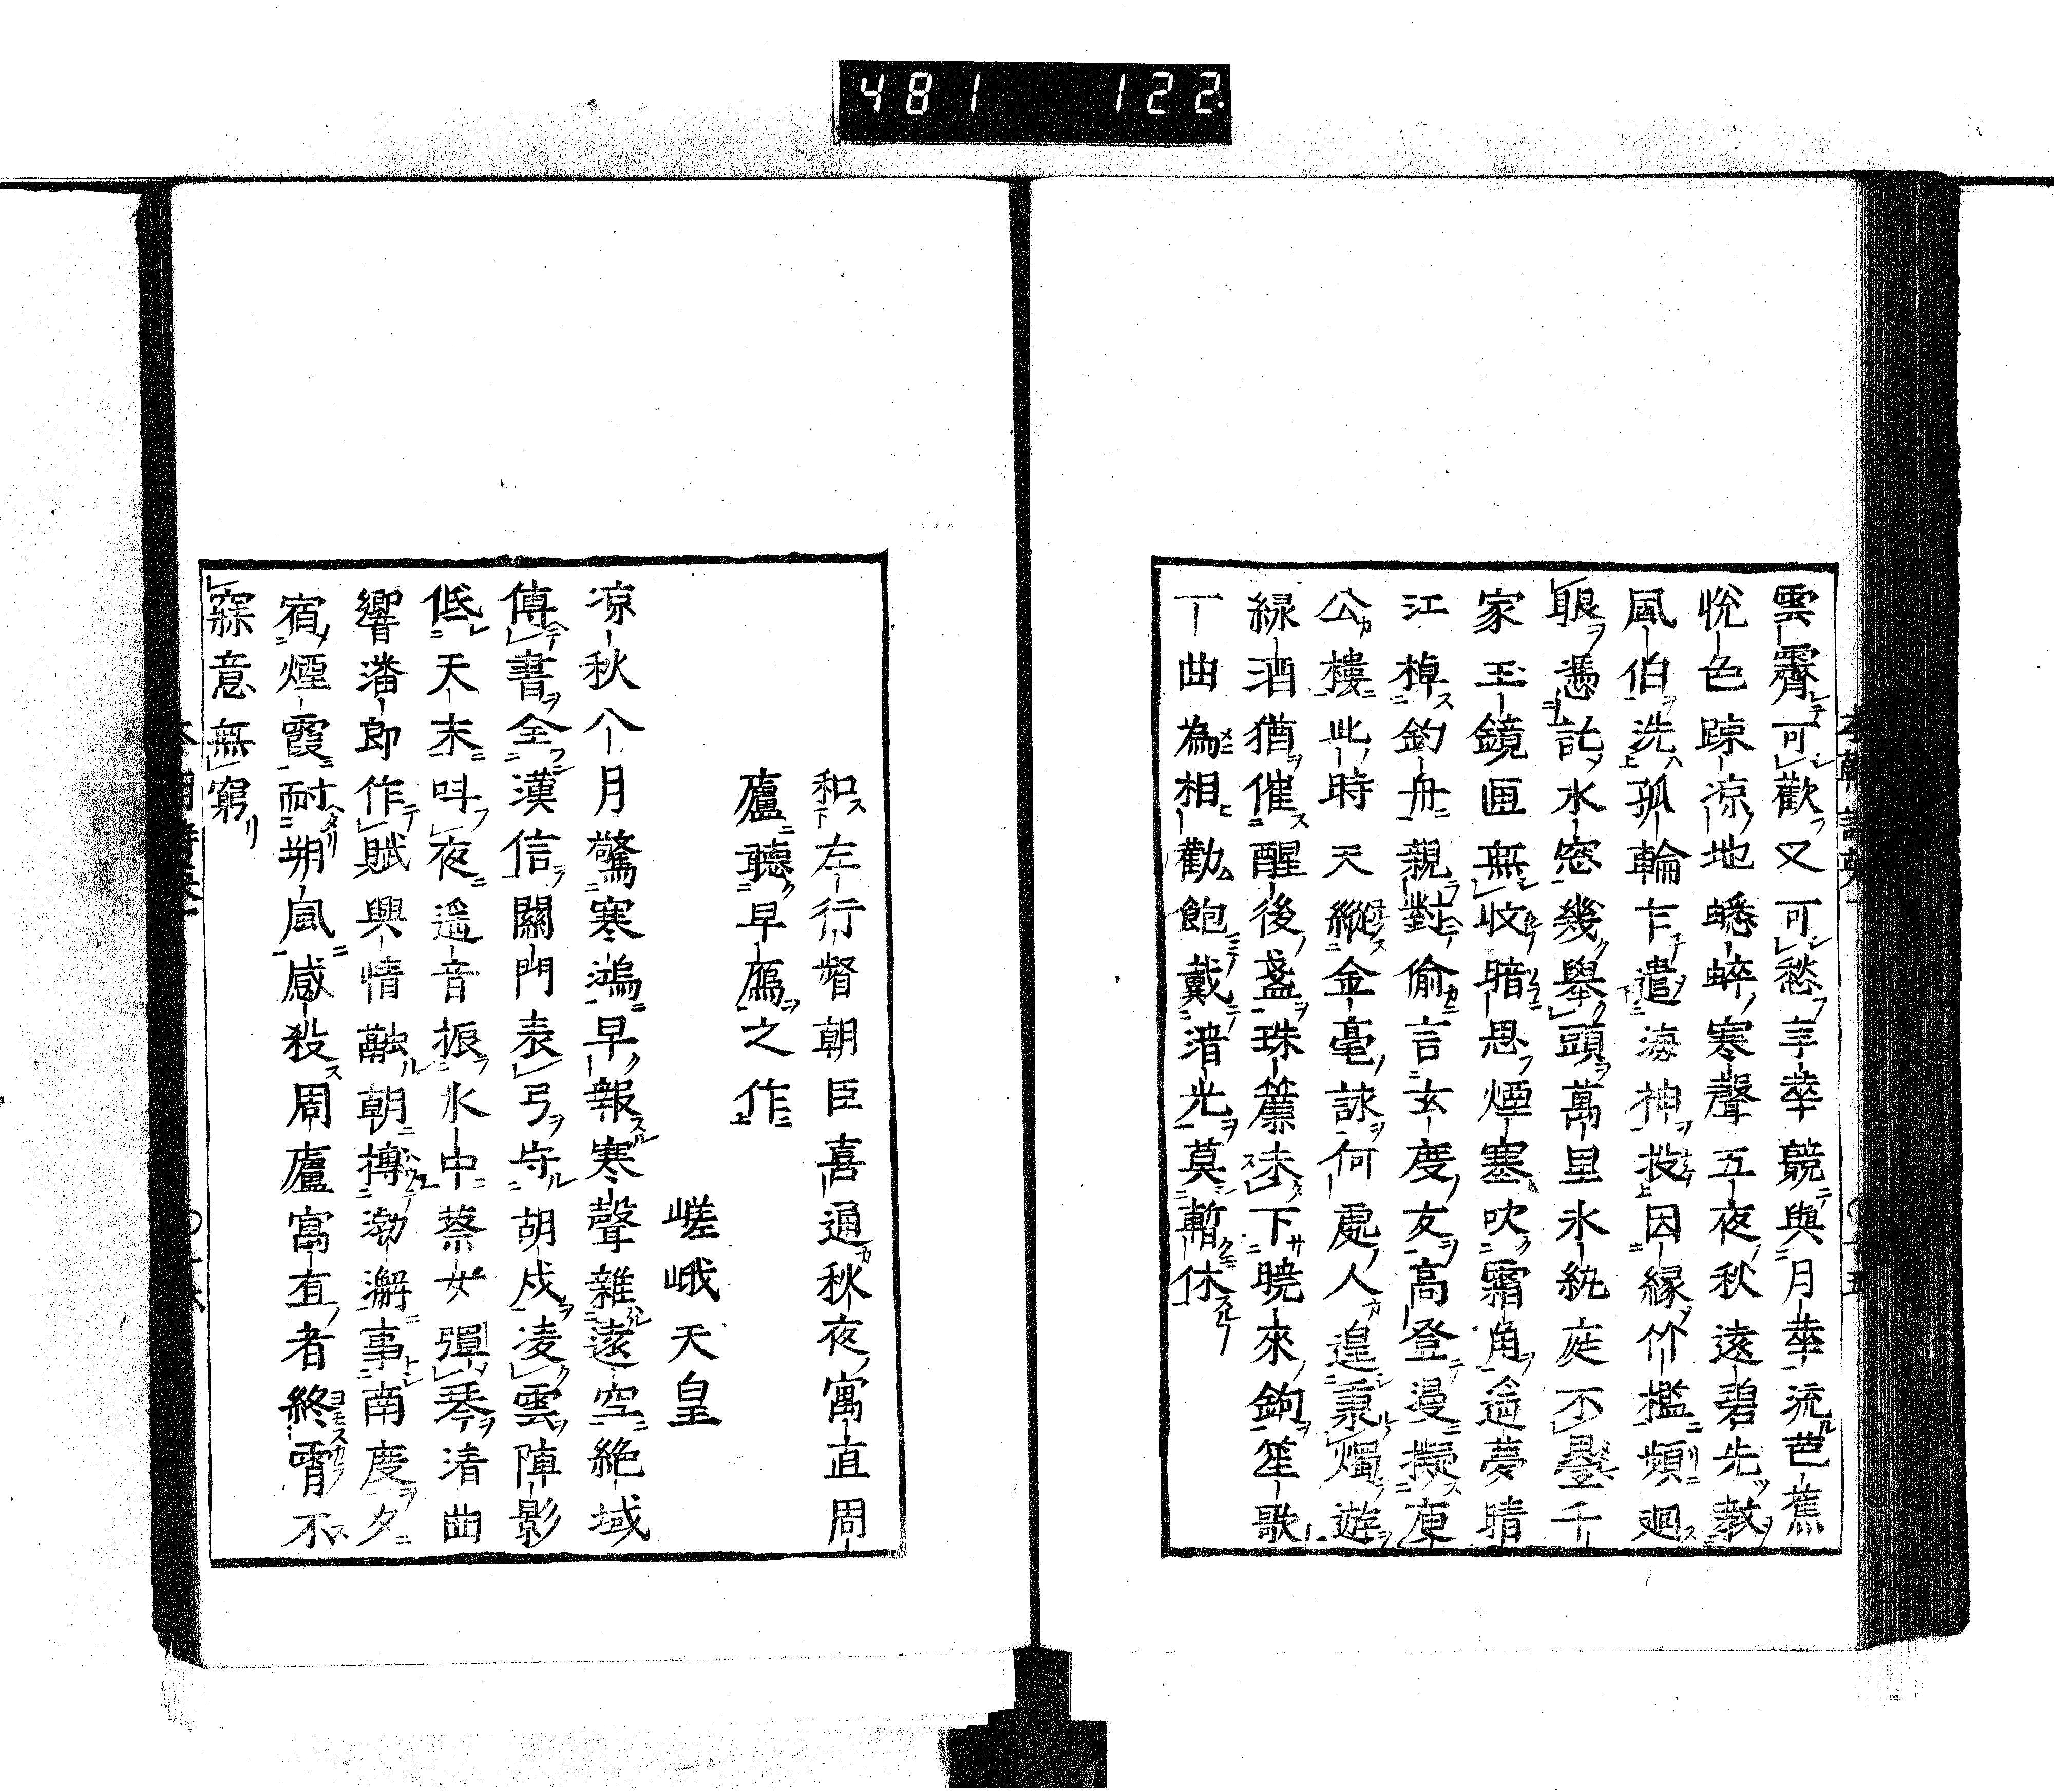 481 122
雲霽可歡又可愁年年競與月年流芭蕉
悅色踈凉地蟋蟀寒聲五夜秋遠碧先教
風伯洗孤輪乍遣海神投因緣竹檻頻廻
眼憑託水窓幾舉頭萬里氷紈庭不疊千
家玉鏡匣無收暗思煙塞吹霜角遙夢晴
江棹釣舟親對偷言玄度友高登漫擬庾
公樓此時天縱金毫詠何處人遑秉燭遊
綠酒猶催醒後盞珠簾未下曉來鉤笙歌
一曲為相勸飽戴淸光莫暫休
和左行督朝臣喜通秋夜寓直周
廬聽早鴈之作
嵯峨天皇
凉秋八月驚寒鴻早報寒聲雜遠空絕域
傳書全漢信關門表弓守胡戍凌雲陣影
低天末叫夜遥音振水中蔡女彈琴清曲
響潘郎作賦興情融朝摶渤澥事南度夕
宿煙霞耐朔風感殺周廬寓直者終霄不
寐意無窮